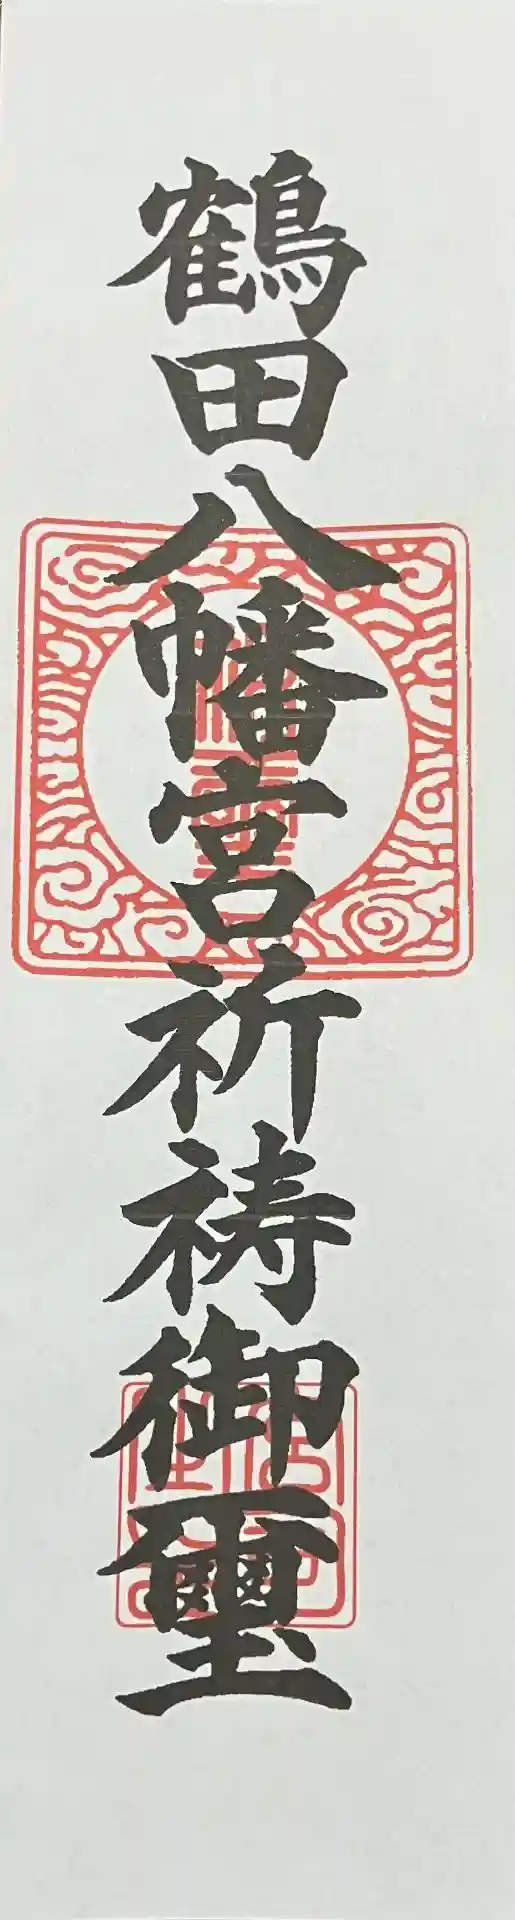 鶴田八幡宮祈祷御璽